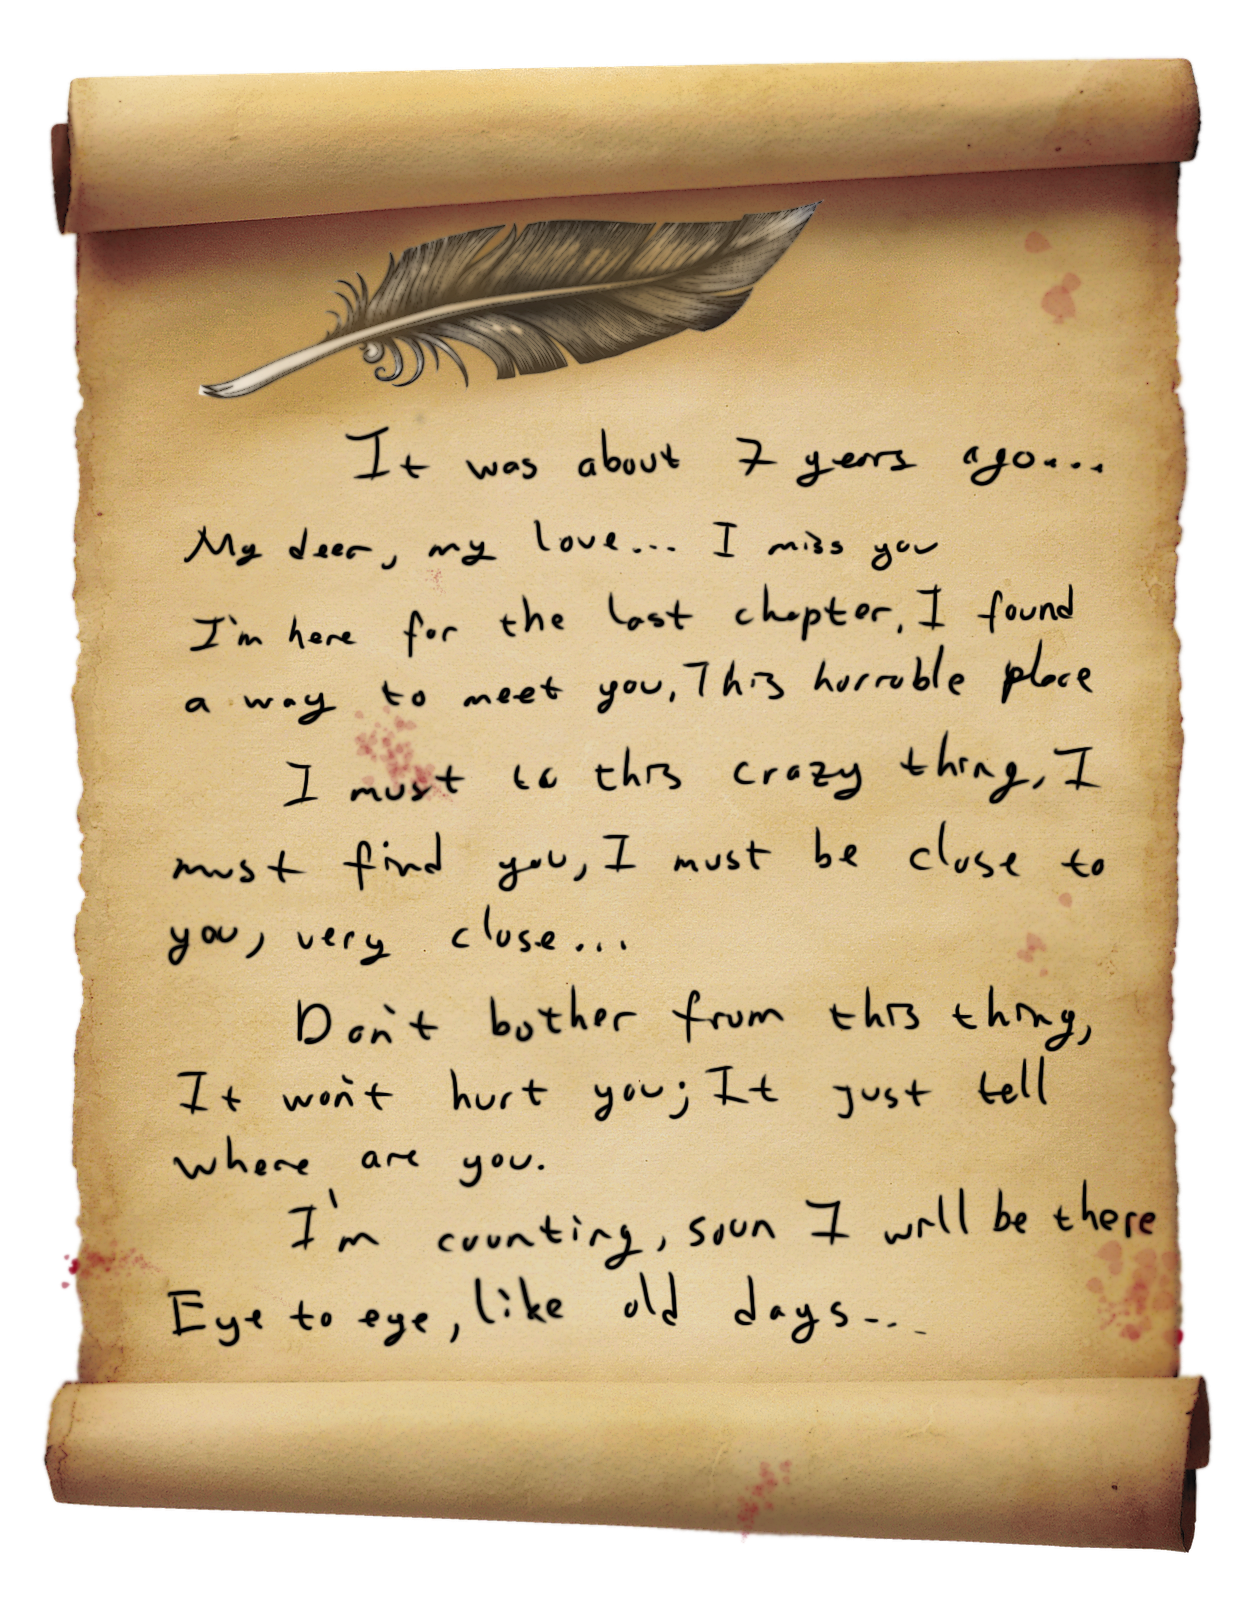 It was about 7 years ago...
My deer, my love... I miss you
I'm here for the last chapter, I found
a way to meet you, This horrable place
I must to this crazy thing, I
must find you, I must be close to
you, very close...
Don't bother from this thing,
It won't hurt you; It just tell
where are you.
I'm counting, soon I will be there
Eye to eye, like old days...